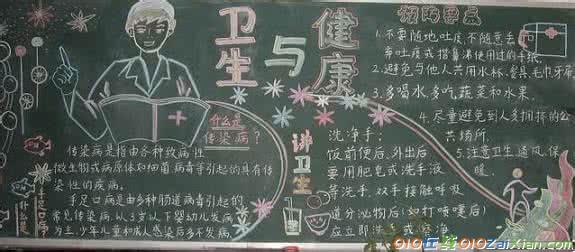 卫生与健康
什么是
传染病？
传染病是指由各种致病性
微生物或病原体如细菌病毒等引起的具有传
染性的疾病。
手足口病是由多种肠道病毒引起的
常见传染病，以3岁以下婴幼儿发病
为主，少年儿童和成人感染后多不发病
什么是
手足口病
讲卫生
洗净手：
饭前便后、外出后
要用肥皂或洗手液
等洗手，双手接触呼吸
道分泌物后（如打喷嚏后）
应立即洗手或擦净
预防要点
1.不要随地吐痰，不随意丢
弃吐痰或揩鼻涕使用过的手纸
2.避免与他人共用水杯、餐具、毛巾牙刷
3.多喝水，多吃蔬菜和水果。
4.尽量避免到人多拥挤的公
共场所。
5.注意卫生通风保
暖。
010在线
010ZaiXian.com